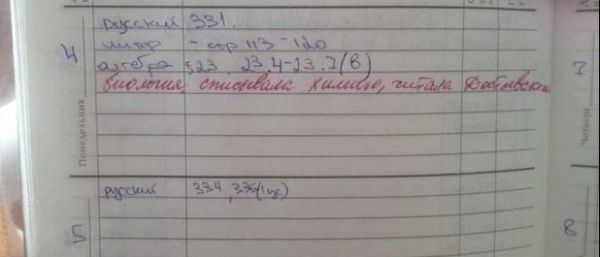 русский 331.
4
литер - стр 113-120
алгебра §23. 23.4-23.7(в)
7
биология списывала химию, читала Достоевск
Понедельник
Четверг
русский 334, 335(1
5
8